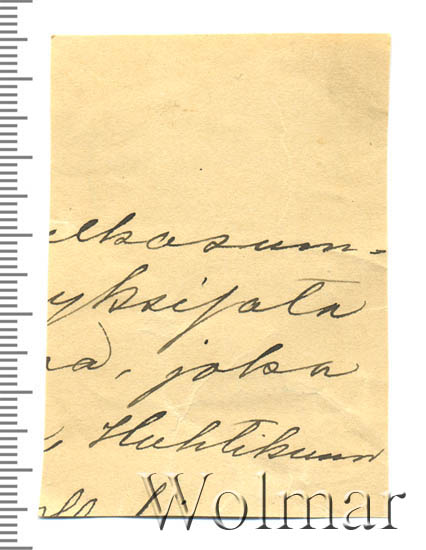 elkosum=
yksijata
na), joka
, Huhtikuun
Wolmar